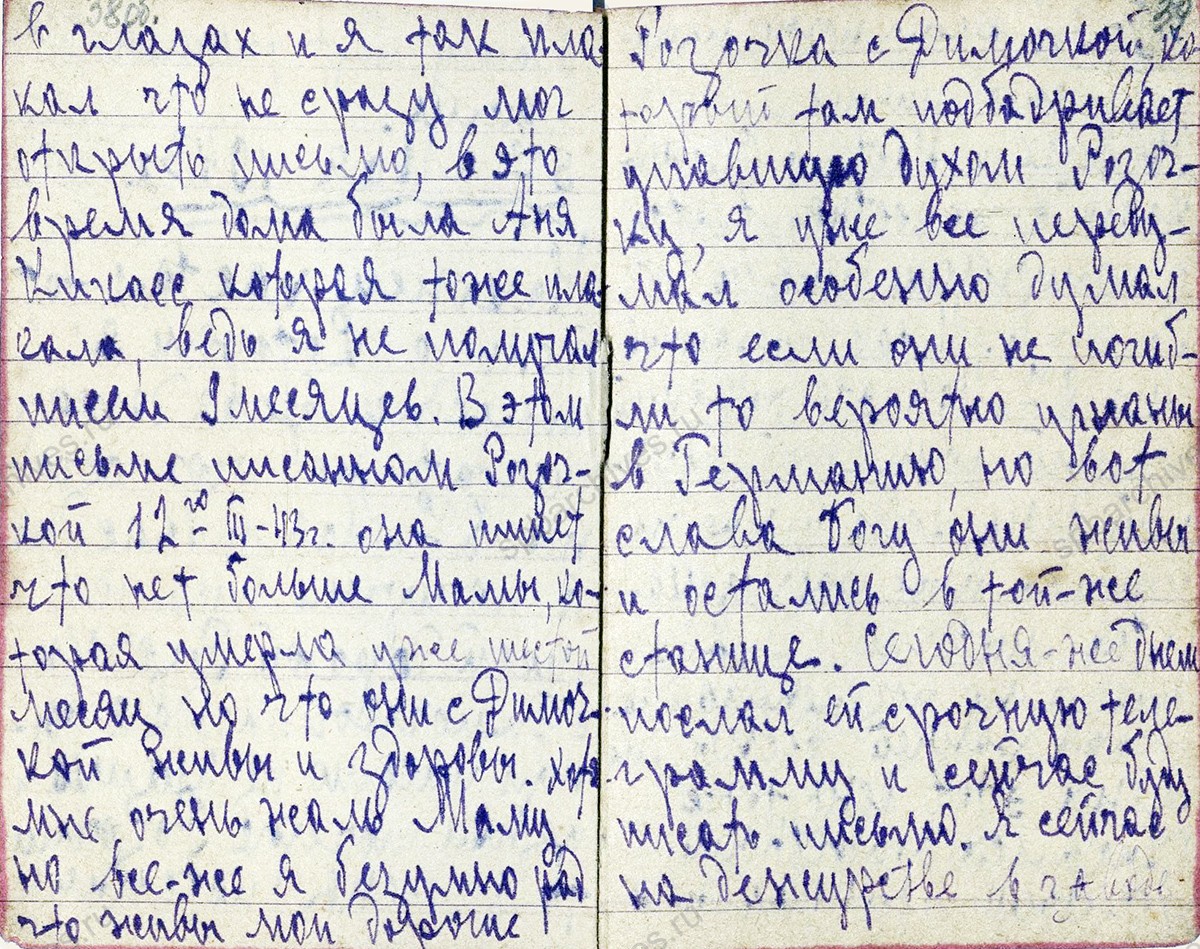 38об.
в глазах и я так пла-
кал что не сразу мог
открыть письмо, в это
время дома была Аня
которая тоже пла-
кала, ведь я не получал
писем 9 месяцев. В этом
письме писанном Розоч-
кой 12го III-43г. она пишет
что нет больше Мамы, ко-
торая умерла уже шестой
месяц но что они с Димоч-
кой живы и здоровы. хотя
мне очень жаль Маму
но все-же я безумно рад
что живы мои дорогие
39
Розочка с Димочкой, ко-
торый там подбадривает
упавшую духом Розоч-
ку, я уже все переду-
мал особенно думал
что если они не погиб-
ли то вероятно угнаны
в Германию, но вот
слава богу они живы
и остались в той-же
станице. Сегодня-же днем
послал ей срочную теле-
грамму и сейчас буду
писать письмо. Я сейчас
на дежурстве в заводе